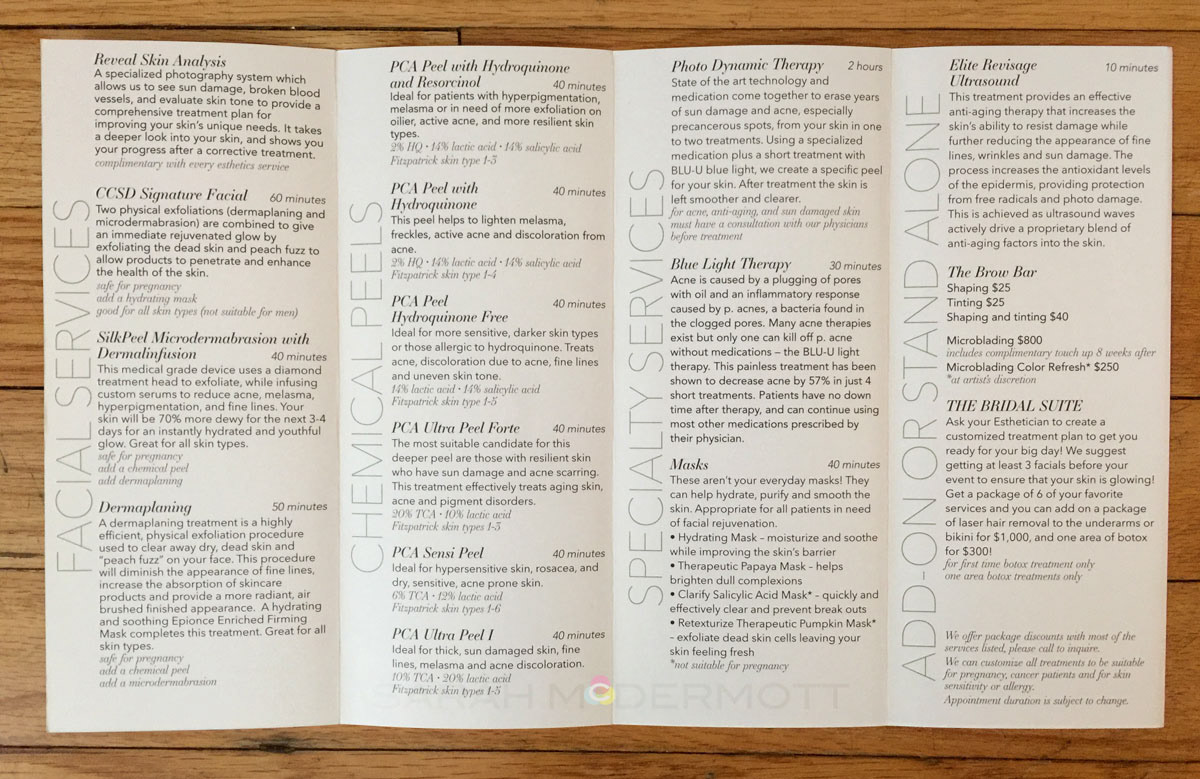 FACIAL SERVICES
Reveal Skin Analysis
A specialized photography system which
allows us to see sun damage, broken blood
vessels, and evaluate skin tone to provide a
comprehensive treatment plan for
improving your skin's unique needs. It takes
a deeper look into your skin, and shows you
your progress after a corrective treatment.
complimentary with every esthetics service
CCSD Signature Facial 60 minutes
Two physical exfoliations (dermaplaning and
microdermabrasion) are combined to give
an immediate rejuvenated glow by
exfoliating the dead skin and peach fuzz to
allow products to penetrate and enhance
the health of the skin.
safe for pregnancy
add a hydrating mask
good for all skin types (not suitable for men)
SilkPeel Microdermabrasion with
Dermalinfusion 40 minutes
This medical grade device uses a diamond
treatment head to exfoliate, while infusing
custom serums to reduce acne, melasma,
hyperpigmentation, and fine lines. Your
skin will be 70% more dewy for the next 3-4
days for an instantly hydrated and youthful
glow. Great for all skin types.
safe for pregnancy
add a chemical peel
add dermaplaning
Dermaplaning 50 minutes
A dermaplaning treatment is a highly
efficient, physical exfoliation procedure
used to clear away dry, dead skin and
"peach fuzz" on your face. This procedure
will diminish the appearance of fine lines,
increase the absorption of skincare
products and provide a more radiant, air
brushed finished appearance. A hydrating
and soothing Epionce Enriched Firming
Mask completes this treatment. Great for all
skin types.
safe for pregnancy
add a chemical peel
add a microdermabrasion
CHEMICAL PEELS
PCA Peel with Hydroquinone
and Resorcinol 40 minutes
Ideal for patients with hyperpigmentation,
melasma or in need of more exfoliation on
oilier, active acne, and more resilient skin
types.
2% HQ • 14% lactic acid • 14% salicylic acid
Fitzpatrick skin type 1-3
PCA Peel with 40 minutes
Hydroquinone
This peel helps to lighten melasma,
freckles, active acne and discoloration from
acne.
2% HQ • 14% lactic acid • 14% salicylic acid
Fitzpatrick skin type 1-4
PCA Peel 40 minutes
Hydroquinone Free
Ideal for more sensitive, darker skin types
or those allergic to hydroquinone. Treats
acne, discoloration due to acne, fine lines
and uneven skin tone.
14% lactic acid • 14% salicylic acid
Fitzpatrick skin type 1-5
PCA Ultra Peel Forte 40 minutes
The most suitable candidate for this
deeper peel are those with resilient skin
who have sun damage and acne scarring.
This treatment effectively treats aging skin,
acne and pigment disorders.
20% TCA • 10% lactic acid
Fitzpatrick skin types 1-3
PCA Sensi Peel 40 minutes
Ideal for hypersensitive skin, rosacea, and
dry, sensitive, acne prone skin.
6% TCA • 12% lactic acid
Fitzpatrick skin types 1-6
PCA Ultra Peel I 40 minutes
Ideal for thick, sun damaged skin, fine
lines, melasma and acne discoloration.
10% TCA • 20% lactic acid
Fitzpatrick skin types 1-5
SPECIALTY SERVICES
Photo Dynamic Therapy 2 hours
State of the art technology and
medication come together to erase years
of sun damage and acne, especially
precancerous spots, from your skin in one
to two treatments. Using a specialized
medication plus a short treatment with
BLU-U blue light, we create a specific peel
for your skin. After treatment the skin is
left smoother and clearer.
for acne, anti-aging, and sun damaged skin
must have a consultation with our physicians
before treatment
Blue Light Therapy 30 minutes
Acne is caused by a plugging of pores
with oil and an inflammatory response
caused by p. acnes, a bacteria found in
the clogged pores. Many acne therapies
exist but only one can kill off p. acne
without medications – the BLU-U light
therapy. This painless treatment has been
shown to decrease acne by 57% in just 4
short treatments. Patients have no down
time after therapy, and can continue using
most other medications prescribed by
their physician.
Masks 40 minutes
These aren't your everyday masks! They
can help hydrate, purify and smooth the
skin. Appropriate for all patients in need
of facial rejuvenation.
• Hydrating Mask – moisturize and soothe
while improving the skin's barrier
• Therapeutic Papaya Mask – helps
brighten dull complexions
• Clarify Salicylic Acid Mask* – quickly and
effectively clear and prevent break outs
• Retexturize Therapeutic Pumpkin Mask*
– exfoliate dead skin cells leaving your
skin feeling fresh
*not suitable for pregnancy
ADD-ON OR STAND ALONE
Elite Revisage 10 minutes
Ultrasound
This treatment provides an effective
anti-aging therapy that increases the
skin's ability to resist damage while
further reducing the appearance of fine
lines, wrinkles and sun damage. The
process increases the antioxidant levels
of the epidermis, providing protection
from free radicals and photo damage.
This is achieved as ultrasound waves
actively drive a proprietary blend of
anti-aging factors into the skin.
The Brow Bar
Shaping $25
Tinting $25
Shaping and tinting $40
Microblading $800
includes complimentary touch up 8 weeks after
Microblading Color Refresh* $250
*at artist's discretion
THE BRIDAL SUITE
Ask your Esthetician to create a
customized treatment plan to get you
ready for your big day! We suggest
getting at least 3 facials before your
event to ensure that your skin is glowing!
Get a package of 6 of your favorite
services and you can add on a package
of laser hair removal to the underarms or
bikini for $1,000, and one area of botox
for $300!
for first time botox treatment only
one area botox treatments only
We offer package discounts with most of the
services listed, please call to inquire.
We can customize all treatments to be suitable
for pregnancy, cancer patients and for skin
sensitivity or allergy.
Appointment duration is subject to change.
SARAH MCDERMOTT